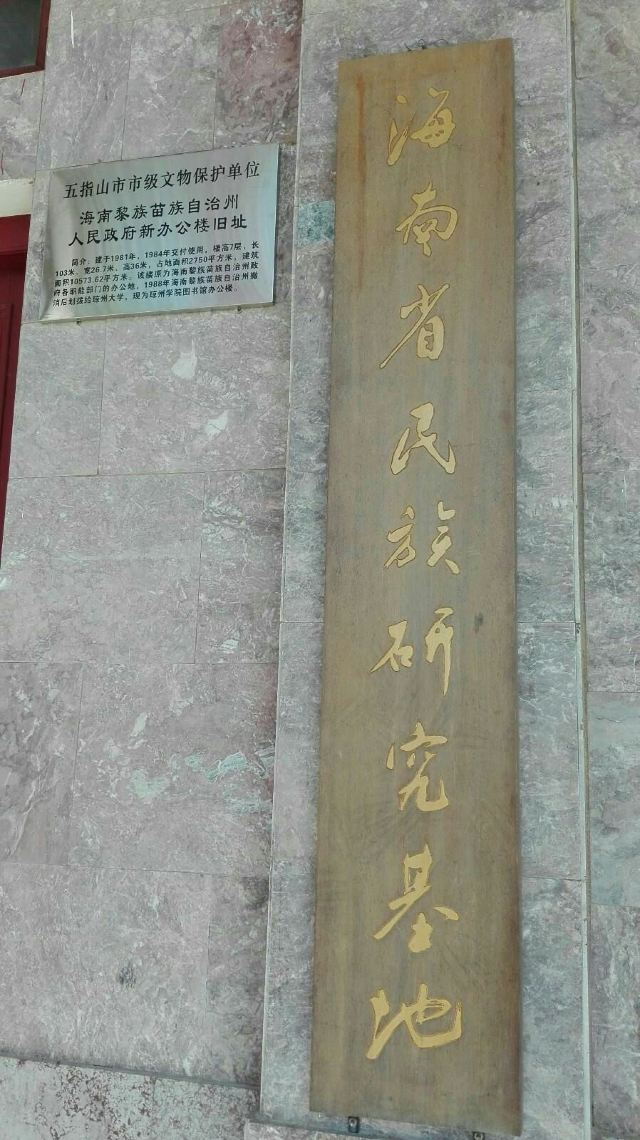 五指山市市级文物保护单位
海南黎族苗族自治州
人民政府新办公楼旧址
简介：建于1981年，1984年交付使用。楼高7层，长
103米、宽26.7米、高36米，占地面积2750平方米，建筑
面积10573.62平方米。该楼原为海南黎族苗族自治州政
府各职能部门的办公地，1988年海南黎族苗族自治州撤
消后划拨给琼州大学，现为琼州学院图书馆办公楼。
海南省民族研究基地